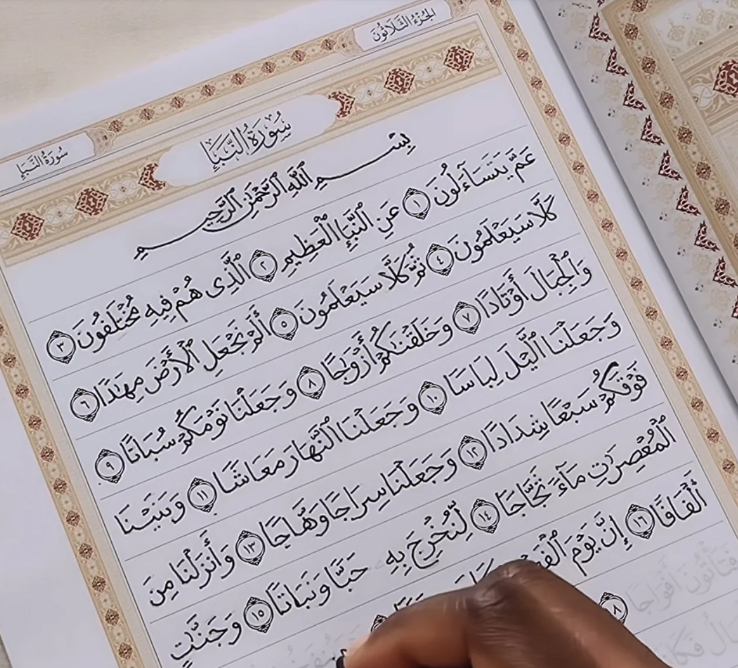 الجُزْءُ الثَّلَاثُونَ
سُورَةُ النَّبَإِ
سُورَةُ النَّبَإِ
بِسْمِ اللَّهِ الرَّحْمَٰنِ الرَّحِيمِ
عَمَّ يَتَسَآءَلُونَ ١ عَنِ ٱلنَّبَإِ ٱلْعَظِيمِ ٢ ٱلَّذِى هُمْ فِيهِ مُخْتَلِفُونَ ٣
كَلَّا سَيَعْلَمُونَ ٤ ثُمَّ كَلَّا سَيَعْلَمُونَ ٥ أَلَمْ نَجْعَلِ ٱلْأَرْضَ مِهَٰدًا ٦
وَٱلْجِبَالَ أَوْتَادًا ٧ وَخَلَقْنَٰكُمْ أَزْوَٰجًا ٨ وَجَعَلْنَا نَوْمَكُمْ سُبَاتًا ٩
وَجَعَلْنَا ٱلَّيْلَ لِبَاسًا ١٠ وَجَعَلْنَا ٱلنَّهَارَ مَعَاشًا ١١ وَبَنَيْنَا
فَوْقَكُمْ سَبْعًا شِدَادًا ١٢ وَجَعَلْنَا سِرَاجًا وَهَّاجًا ١٣ وَأَنزَلْنَا مِنَ
ٱلْمُعْصِرَٰتِ مَآءً ثَجَّاجًا ١٤ لِّنُخْرِجَ بِهِۦ حَبًّا وَنَبَاتًا ١٥ وَجَنَّٰتٍ
أَلْفَافًا ١٦ إِنَّ يَوْمَ
فَتَأْتُونَ أَفْوَاجًا ١٨